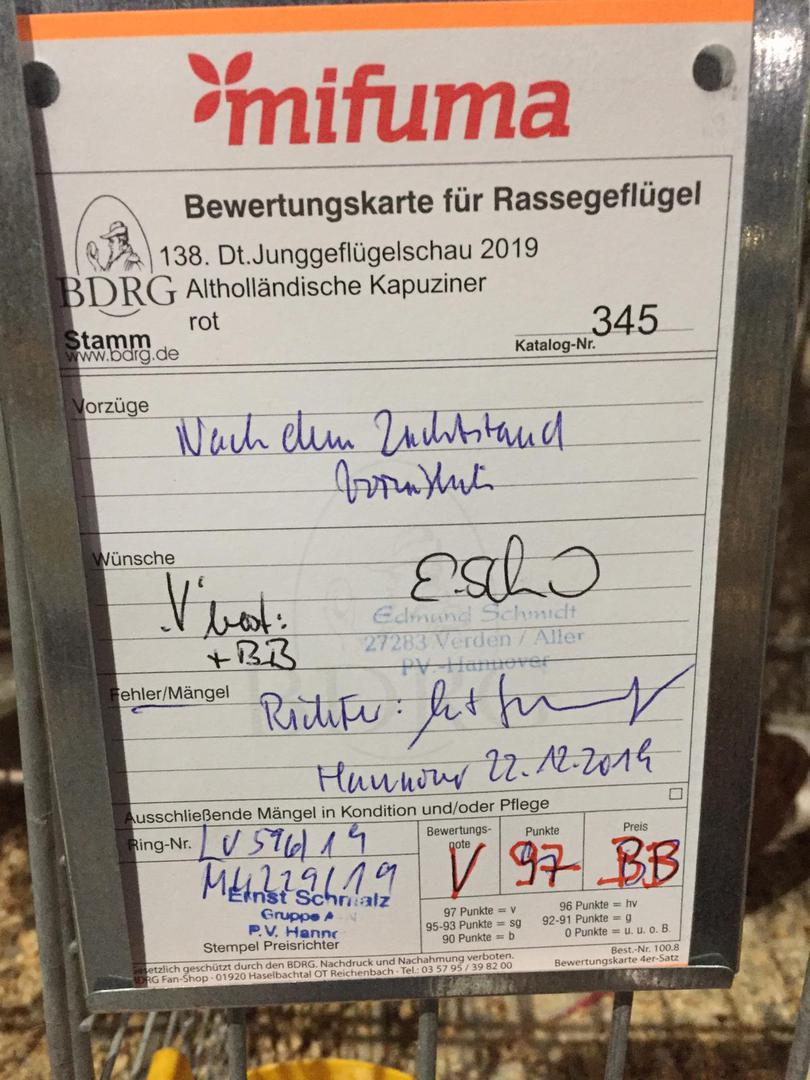 mifuma
Bewertungskarte für Rassegeflügel
138. Dt.Junggeflügelschau 2019
BDRG Altholländische Kapuziner
rot
Stamm
www.bdrg.de
Katalog-Nr. 345
Vorzüge
Nach dem Zuchtstand
Wünsche
V best:
+ BB
Edmund Schmidt
27283 Verden / Aller
PV-Hannover
Fehler/Mängel
Richter:
Hannover 22.12.2019
Ausschließende Mängel in Kondition und/oder Pflege
Ring-Nr. LV 596/19
MU229/19
Ernst Schmalz
Gruppe A
P.V. Hann
Stempel Preisrichter
Bewertungs-
note
V
Punkte
97
Preis
BB
97 Punkte = v
95-93 Punkte = sg
90 Punkte = b
96 Punkte = hv
92-91 Punkte = g
0 Punkte = u. u. o. B.
Best.-Nr. 100.8
Bewertungskarte 4er-Satz
esetzlich geschützt durch den BDRG. Nachdruck und Nachahmung verboten.
DRG Fan-Shop · 01920 Haselbachtal OT Reichenbach · Tel.: 03 57 95 / 39 82 00